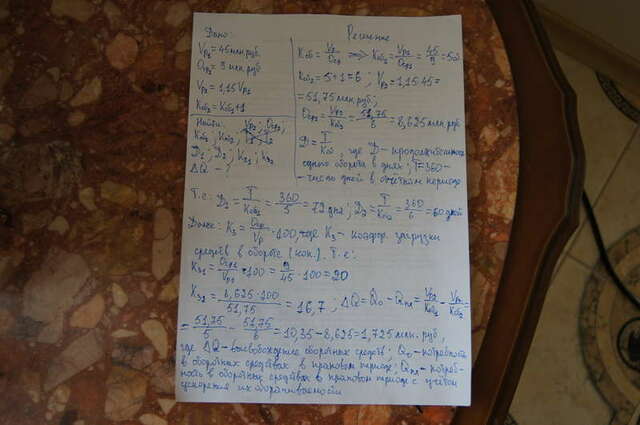 Дано:
Vр₁ = 45 млн.руб
Oср₁ = 9 млн.руб
Vр₂ = 1,15 Vр₁
Kоб₂ = Kоб₁+1
Найти:
Kоб₁, Kоб₂, Vр₂, Oср₂,
D₁; D₂; Kз₁; Kз₂
ΔQ - ?
Решение
Kоб = Vр/Oср => Kоб₁ = Vр₁/Oср₁ = 45/9 = 5об.
Kоб₂ = 5+1=6; Vр₂ = 1,15·45=
= 51,75 млн.руб;
Oср₂ = Vр₂/Kоб₂ = 51,75/6 = 8,625 млн.руб
D = T/Kоб, где D - продолжительность
одного оборота в днях; T=360 -
- число дней в отчётном периоде
Т.е: D₁ = T/Kоб₁ = 360/5 = 72 дня; D₂ = T/Kоб₂ = 360/6 = 60 дней
Далее: Kз = Oср/Vр · 100, где Kз - коэфф. загрузки
средств в обороте (коп.). Т.е:
Kз₁ = Oср₁/Vр₁ · 100 = 9/45 · 100 = 20
Kз₂ = 8,625·100/51,75 = 16,7; ΔQ = Q₀ - Qпл = Vр₂/Kоб₁ - Vр₂/Kоб₂ =
= 51,75/5 - 51,75/6 = 10,35 - 8,625 = 1,725 млн. руб,
где ΔQ - высвобождение оборотных средств; Q₀ - потребность
в оборотных средствах в плановом периоде; Qпл - потреб-
ность в оборотных средствах в плановом периоде с учётом
ускорения их оборачиваемости.